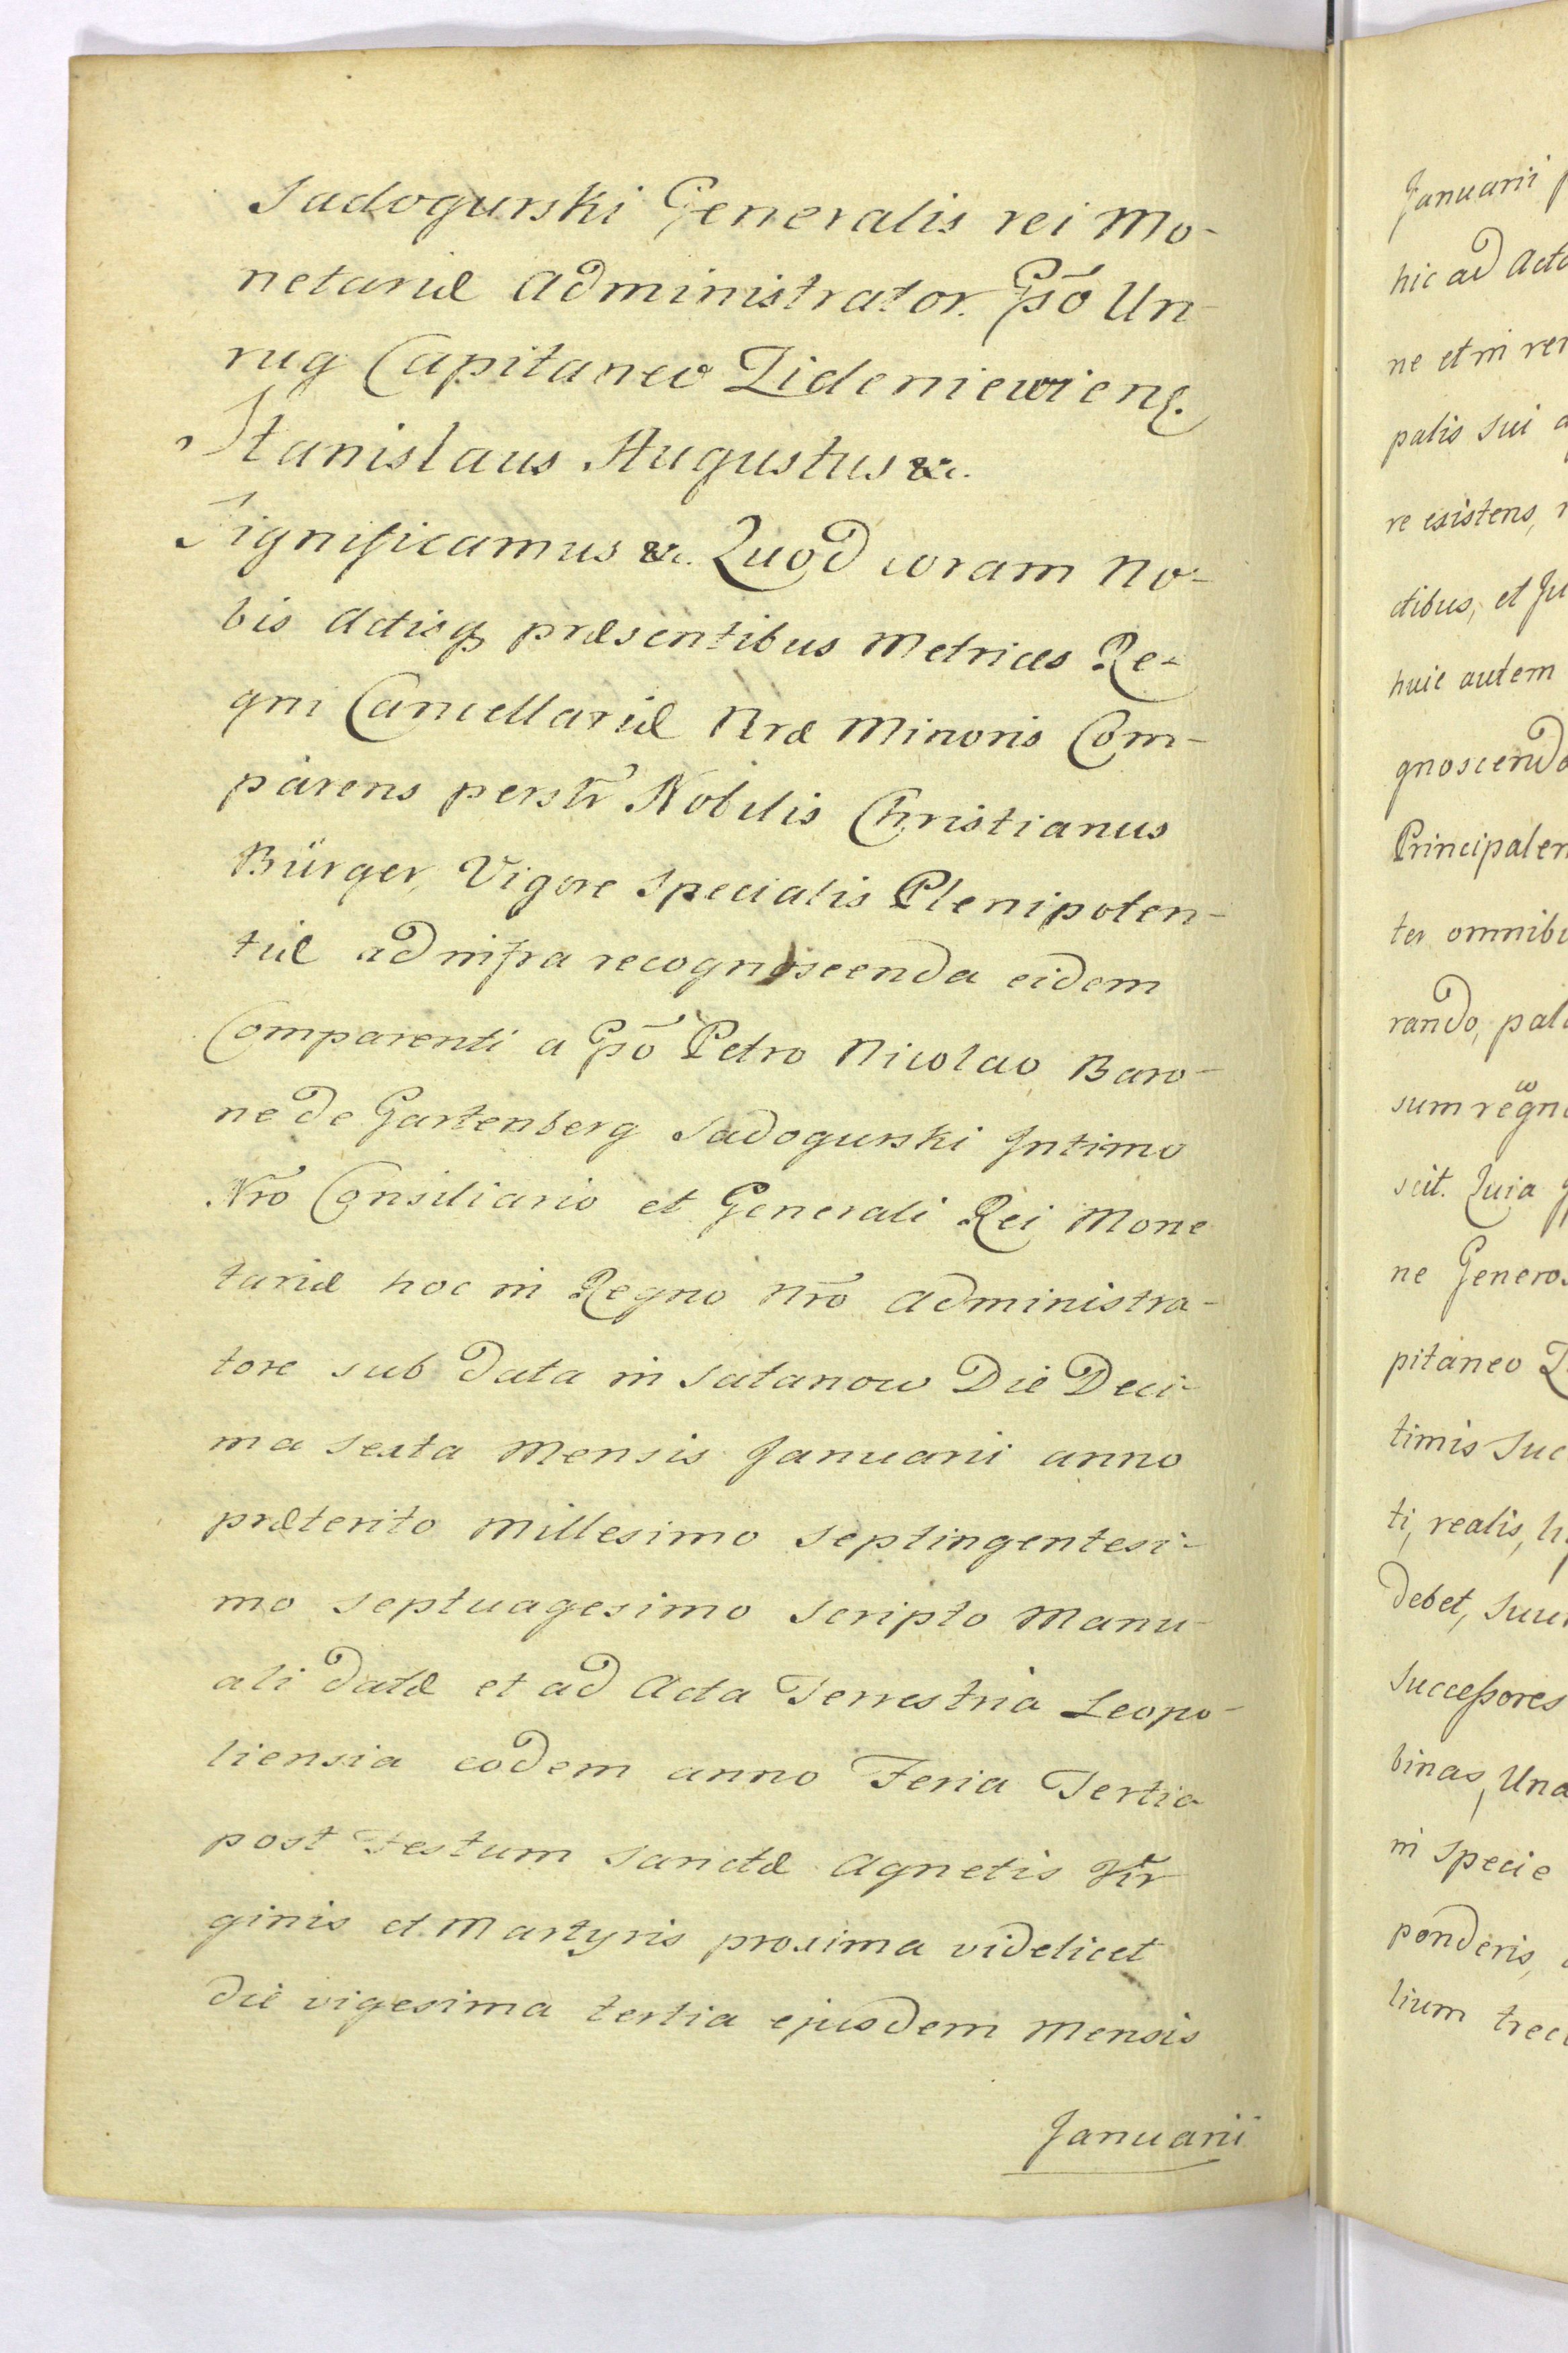 Sadogurski Generalis rei Mo-
netariæ Administrator. Gsō Un-
rug Capitaneo Zideniewieng.
Stanislaus Augustus &c.
Significamus &c. Quod coram No-
bis Actisq præsentibus Metrices Re-
gni Cancellariæ Nræ Minoris Com-
parens perstr Nobilis Christianus
Bürger, Vigore Specialis Plenipoten-
tiæ ad infra recognoscenda eidem
Comparenti a Gsō Petro Nicolao Baro-
ne de Gartenberg Sadogurski Intimo
Nrō Consiliario et Generali Rei Mone
tariæ hoc in Regno Nrō Administra-
tore sub Data in Satanow Die Deci-
ma sexta Mensis Januarii anno
præterito Millesimo Septingentesi-
mo Septuagesimo Scripto Manu-
ali datæ et ad Acta Terrestria Leopo-
liensia eodem anno Feria Tertia
post Festum Sanctæ Agnetis Vir
ginis et Martyris proxima videlicet
die vigesima tertia ejusdem Mensis
Januarii
Januarii
hic ad Acta
ne et in
palis sui
re existens,
ctibus, et
huic autem
gnoscendo
Principalem
ter omnibu
rando,
sum
scit. Quia
ne Generos
pitaneo
timis Suc
ti, realis,
debet,
Successores
binas, Una
in Specie
ponderis,
lium